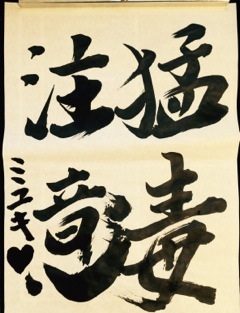 猛毒
注意
ミミユキ♥